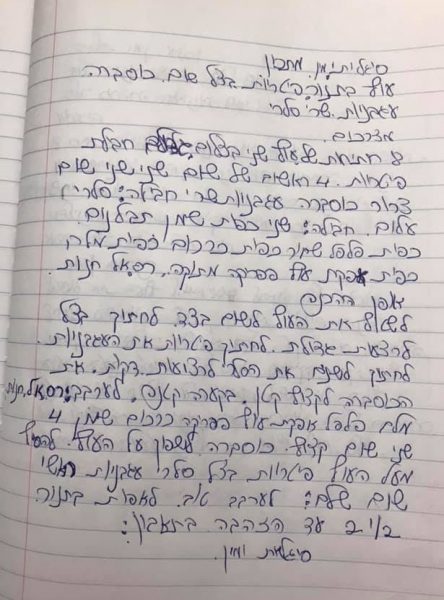 סיגלית ימין. מתכון
עוף בתנור פיטריות בצל שום. כוסברה
עגבניות שרי סלרי
מצרכים.
8 חתיכות של עוף שני בצלים חבילת
פיטריות. 4 ראשים של שום שני שיני שום
צרור כוסברה עגבניות שרי חבילה: סלרי
עלים. חבילה: שני כפות שמן תבלנים.
כפית פלפל שחור כפית כרכום כפית מלח
כפית אבקת עוף פפריקה מתוקה. ראסל חנות.
אופן ההכנה
לשטוף את העוף לשים בצד לחתוך בצל
לרצועות גדולות. לחתוך פיטריות את העגבניות.
לחתוך לשנים את הסלרי לרצועות דקות. את
הכוסברה לקצוץ קטן. בקערה לערבב: ראסל חנות
מלח פלפל אבקת עוף פפריקה כרכום שמן 4
שני שום קצוץ. כוסברה לשפוך על העוף. להוסיף
מעל העוף פיטריות בצל סלרי עגבניות ראשי
שום שלם: לערבב טוב. לאפות בתנור.
2 1/2 עד הזהבה בתאבון:
סיגלית ימין.